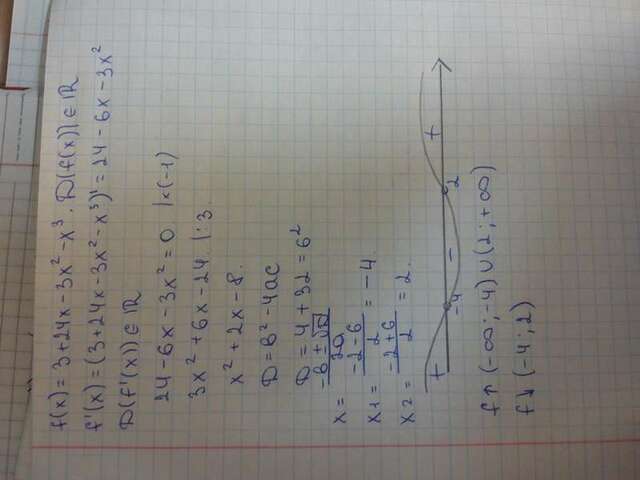 f(x) = 3+24x-3x²-x³. D(f(x)) ∈ ℝ
f'(x) = (3+24x-3x²-x³)' = 24-6x-3x²
D(f'(x)) ∈ ℝ
24-6x-3x²=0 |×(-1)
3x²+6x-24 |:3.
x²+2x-8.
D=в²-4ac
D = 4+32 = 6²
x = (-в±√D)/2a
x1 = (-2-6)/2 = -4.
x2 = (-2+6)/2 = 2.
+ -4 - 2 +
f↑ (-∞;-4)∪(2;+∞)
f↓ (-4;2)